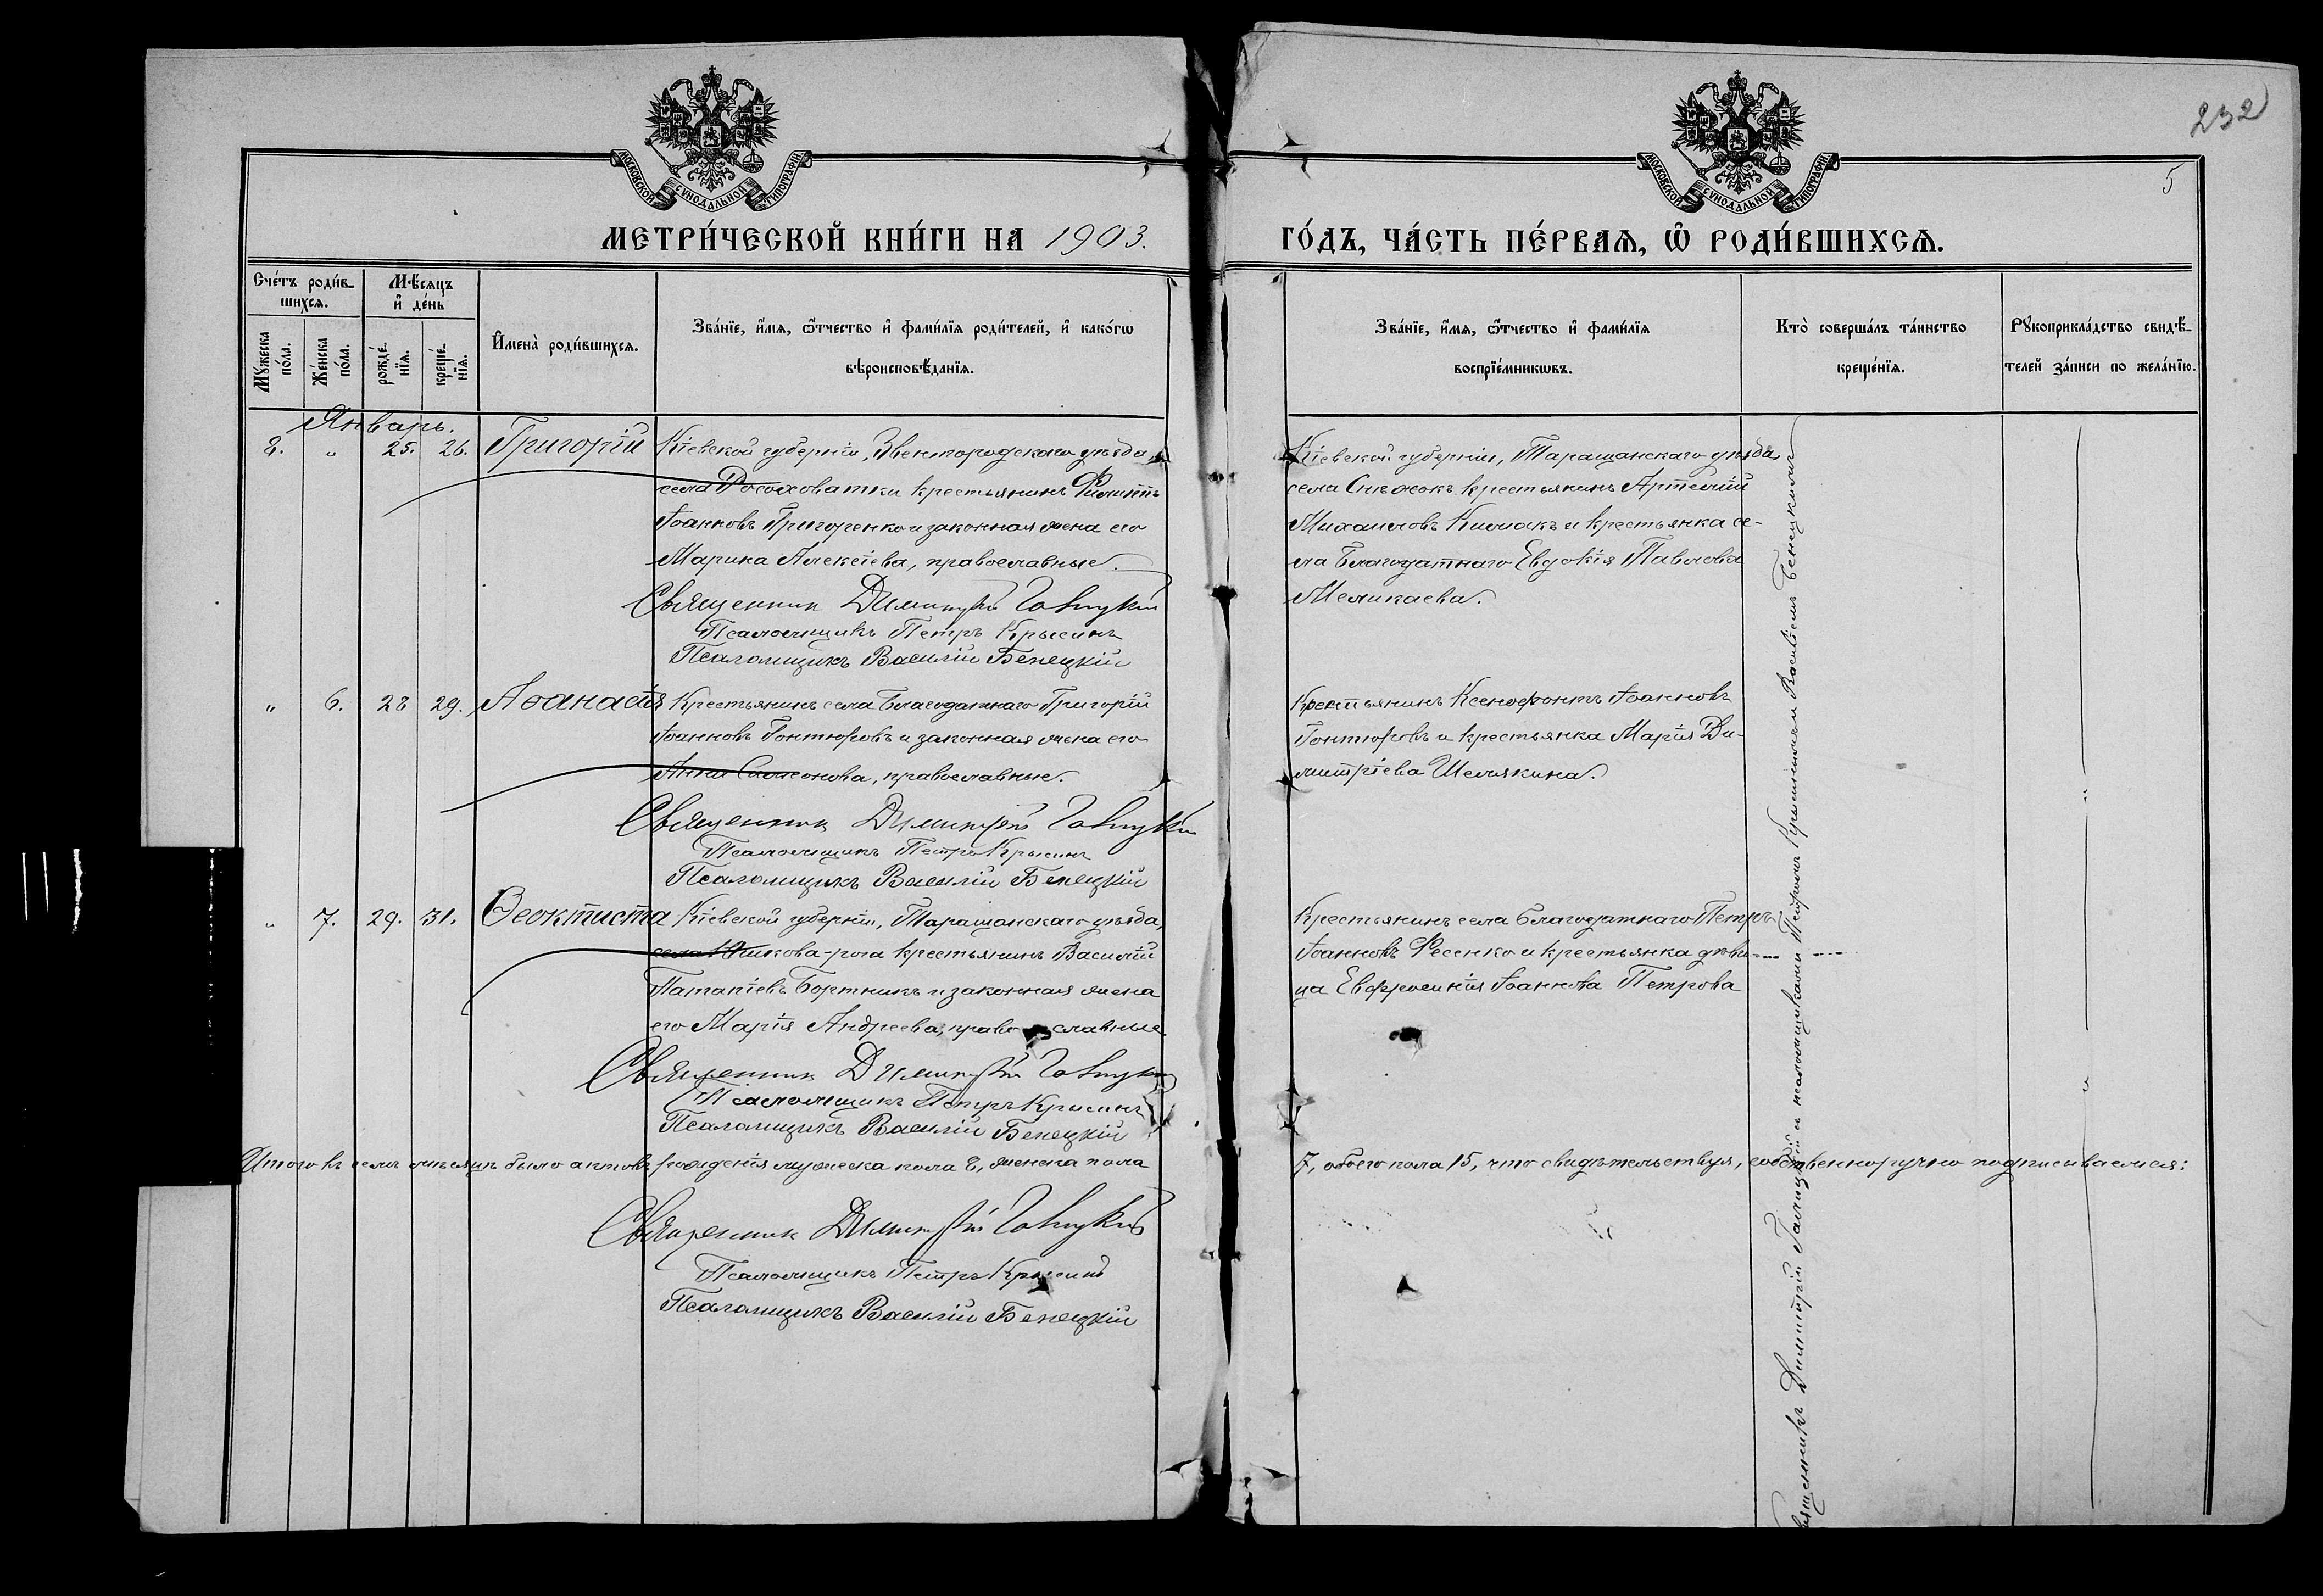 232
5
МОСКОВСКОЙ СѴНОДАЛЬНОЙ ТИПОГРАФІИ
МОСКОВСКОЙ СѴНОДАЛЬНОЙ ТИПОГРАФІИ
МЕТРИ́ЧЕСКОЙ КНИ́ГИ НА 1903. ГО́ДЪ, ЧА́СТЬ ПЕ́РВАѦ, Ѡ҆ РОДИ́ВШИХСѦ.
Сче́тъ роди́в-
шихсѧ.
Мꙋ́жеска по́ла.
Же́нска по́ла.
Мѣ́сѧцъ
и҆ де́нь
рожде́-
нїѧ.
креще́-
нїѧ.
И҆мена̀ роди́вшихсѧ.
Зва́нїе, и҆́мѧ, ѻ҆́тчество и҆ фами́лїѧ роди́телей, и҆ како́гѡ
вѣроисповѣ́данїѧ.
Зва́нїе, и҆́мѧ, ѻ҆́тчество и҆ фами́лїѧ
воспрїе́мникѡвъ.
Кто̀ соверша́лъ та́инство
креще́нїѧ.
Рꙋкоприкла́дство свидѣ́-
телей за́писи по жела́нїю.
Январь.
8. " 25. 26. Григорій
Кіевской губерніи, Звенигородскаго уѣзда,
села Рососховатки крестьянинъ Филиппъ
Іоанновъ Григоренко и законная жена его
Марина Алексіева, православные.
Священник Димитрій Галицкій
Псаломщикъ Петръ Крысинъ
Псаломщикъ Василій Бенецкій
Кіевской губерніи, Таращанскаго уѣзда,
села Снѣжокъ крестьянинъ Артемій
Михаиловъ Кимакъ и крестьянка се-
ла Благодатнаго Евдокія Павлова
Меликаева.
" 6. 28 29. Аѳанасія
Крестьянинъ села Благодатнаго Григорій
Іоанновъ Гонтюровъ и законная жена его
Анна Симеонова, православные.
Священник Димитрій Галицкій
Псаломщикъ Петръ Крысинъ
Псаломщикъ Василій Бенецкій
Крестьянинъ Ксенофонтъ Іоанновъ
Гонтюровъ и крестьянка Марія Ди-
митріева Шелякина.
" 7. 29. 31. Ѳеоктиста
Кіевской губерніи, Таращанскаго уѣзда,
села Юшкова-рога крестьянинъ Василій
Патапіевъ Бортникъ и законная жена
его Марія Андреева, православные.
Священник Димитрій Галицкій
Псаломщикъ Петръ Крысинъ
Псаломщикъ Василій Бенецкій
Крестьянинъ села Благодатнаго Петръ
Іоанновъ Фесенко и крестьянка дѣви-
ца Евфросинія Іоаннова Петрова
Священникъ Димитрій Галицкій съ псаломщиками Петромъ Крысинымъ и Василіемъ Бенецкимъ
Итого въ семъ мѣсяцѣ было актовъ рожденія мужеска пола 8, женска пола 7, обоего пола 15, что свидѣтельствуя, собственноручно подписываемся:
Священник Димитрій Галицкій
Псаломщикъ Петръ Крысинъ
Псаломщикъ Василій Бенецкій